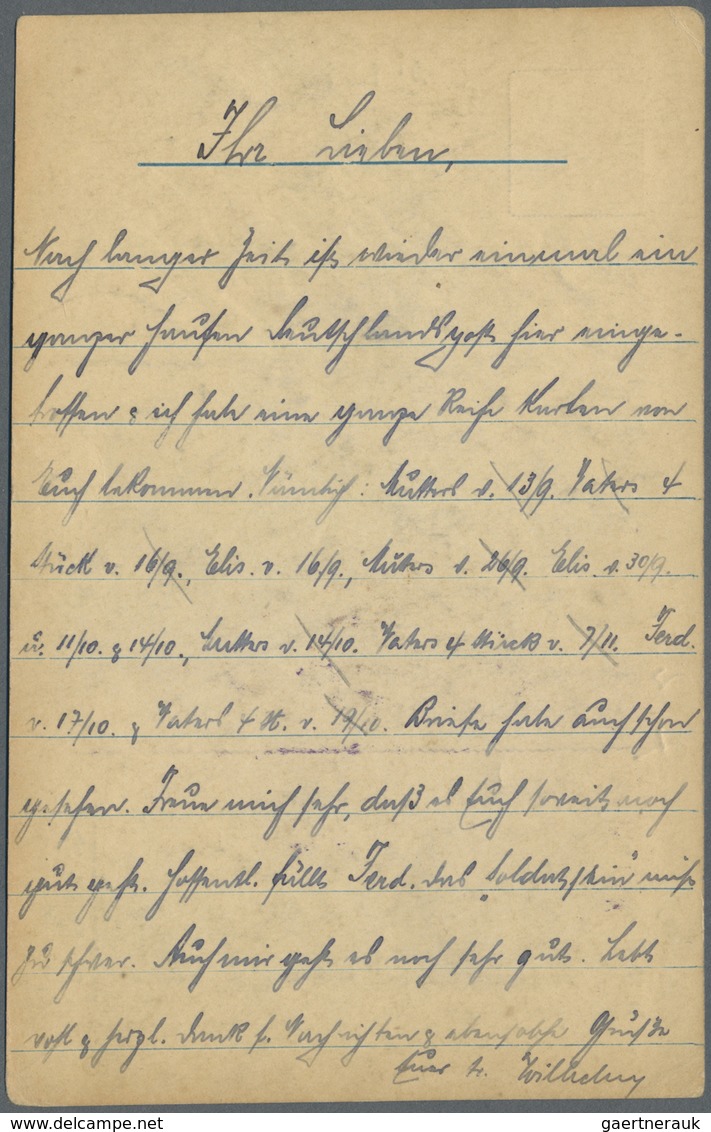 Ihr Lieben,
Nach langer Zeit ist wieder einmal ein
ganzer Haufen Deutschlandspost hier einge-
troffen & ich habe eine ganze Reihe Karten von
Euch bekommen. Nämlich: Mutters v. 13/9. Vaters 4
Stück v. 16/9., Elis. v. 16/9., Mutters v. 26/9. Elis. v. 30/9.
u. 11/10. & 14/10., Mutters v. 14/10. Vaters 4 Stück v. 7/11. Ferd.
v. 17/10. & Vaters 4 St. v. 19/10. Briefe habe auch schon
gesehen. Freue mich sehr, daß es Euch soweit noch
gut geht. Hoffentl. fällt Ferd. das "Soldatsein" nicht
zu schwer. Auch mir geht es noch sehr gut. Lebt
wohl & herzl. Dank f. Nachrichten & ebensolche Grüße
Euer tr. Wilhelm
gaertnerauk